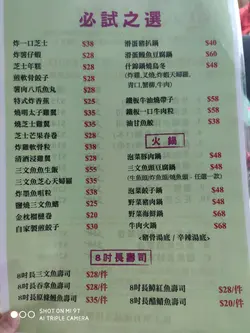 必試之選
炸一口芝士 $38
炸薯仔蝦 $28
芝士年糕 $28
煎軟骨餃子 $28
薯肉八爪魚丸 $28
特式炸香蕉 $25
燒明太子雞翼 $35
燒芝士雞翼 $35
芝士芒果春卷 $28
炸雞軟骨粒 $28
清酒浸雞翼 $28
三文魚魚生飯 $58
三文魚芝心天婦羅 $35
炸墨魚咀粒 $28
鹽燒三文魚腩 $35
金枕榴槤卷 $20
自家製煎餃子 $28
滑蛋豬扒鍋 $40
滑蛋鰻魚豆腐鍋 $60
什錦鍋燒烏冬 $48
(炸雞,叉燒,炸蝦天婦羅,
青口,蟹柳,牛肉)
鐵板牛油燒帶子 $58
鐵板一口牛肉粒 $58
油甘魚鮫 $58
火鍋
泡菜豚肉鍋 $48
三文魚頭豆腐鍋 $48
泡菜餃子鍋 $48
野菜豬肉鍋 $48
野菜海鮮鍋 $68
牛肉火鍋 $68
<豬骨湯底/辛辣湯底>
8吋長壽司
8吋長三文魚壽司 $28/件
8吋長吞拿魚壽司 $28/件
8吋長原條鰻魚壽司 $35/件
8吋長鯡紅魚壽司 $28/件
8吋長醋鯖魚壽司 $20/件
SHOT ON MI 9T
AI TRIPLE CAMERA